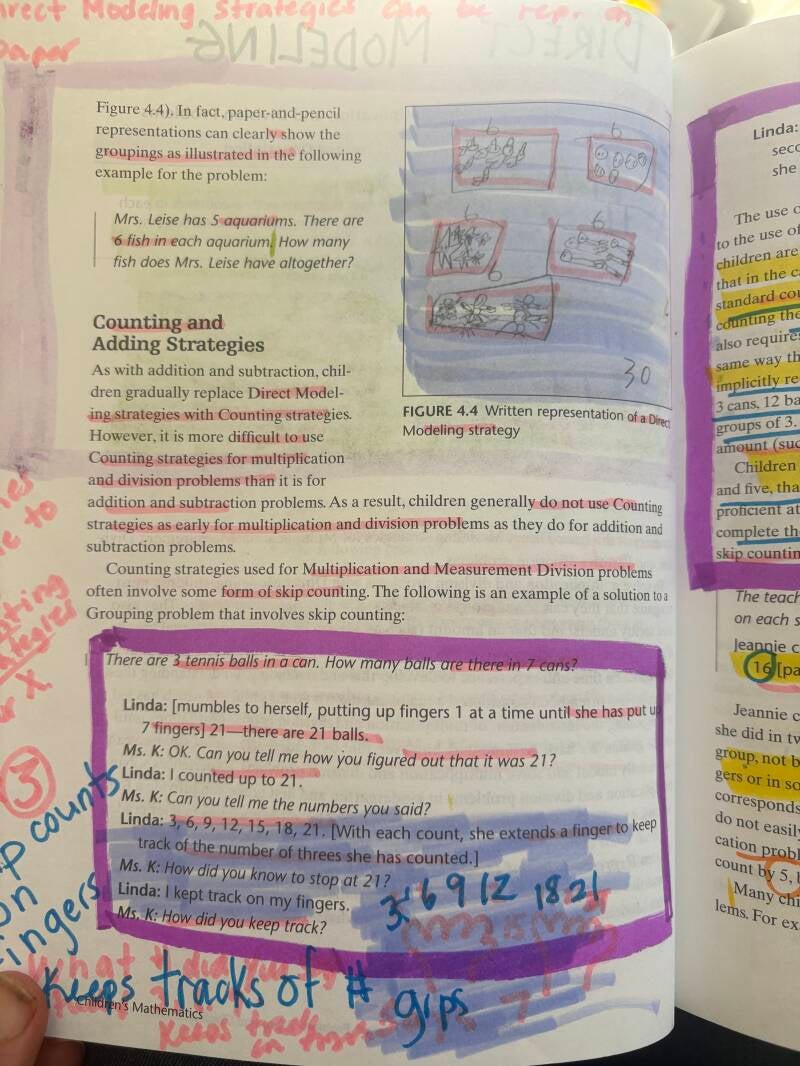 Direct Modeling Strategies can be repr. on
paper
DIRECT MODELING
Figure 4.4). In fact, paper-and-pencil
representations can clearly show the
groupings as illustrated in the following
example for the problem:
Mrs. Leise has 5 aquariums. There are
6 fish in each aquarium. How many
fish does Mrs. Leise have altogether?
6 6
6 6
6
30
FIGURE 4.4 Written representation of a Direct
Modeling strategy
Counting and
Adding Strategies
As with addition and subtraction, chil-
dren gradually replace Direct Model-
ing strategies with Counting strategies.
However, it is more difficult to use
Counting strategies for multiplication
and division problems than it is for
addition and subtraction problems. As a result, children generally do not use Counting
strategies as early for multiplication and division problems as they do for addition and
subtraction problems.
Counting strategies used for Multiplication and Measurement Division problems
often involve some form of skip counting. The following is an example of a solution to a
Grouping problem that involves skip counting:
There are 3 tennis balls in a can. How many balls are there in 7 cans?
Linda: [mumbles to herself, putting up fingers 1 at a time until she has put up
7 fingers] 21—there are 21 balls.
Ms. K: OK. Can you tell me how you figured out that it was 21?
Linda: I counted up to 21.
Ms. K: Can you tell me the numbers you said?
Linda: 3, 6, 9, 12, 15, 18, 21. [With each count, she extends a finger to keep
track of the number of threes she has counted.]
Ms. K: How did you know to stop at 21?
Linda: I kept track on my fingers.
Ms. K: How did you keep track?
3 6 9 12 18 21
3
counts
on
fingers
Keeps tracks of # grps
Children's Mathematics
Keeps track
Linda:
she
The use
to the use of
children are
that in the
standard
counting the
also requires
same way
implicitly
3 cans, 12
groups of 3.
amount
Children
and five,
proficient at
complete
skip
The
on each
Jeannie
16
Jeannie
she did in
group, not
gers or in
corresponds
do not easily
cation
count by 5,
Many
lems. For